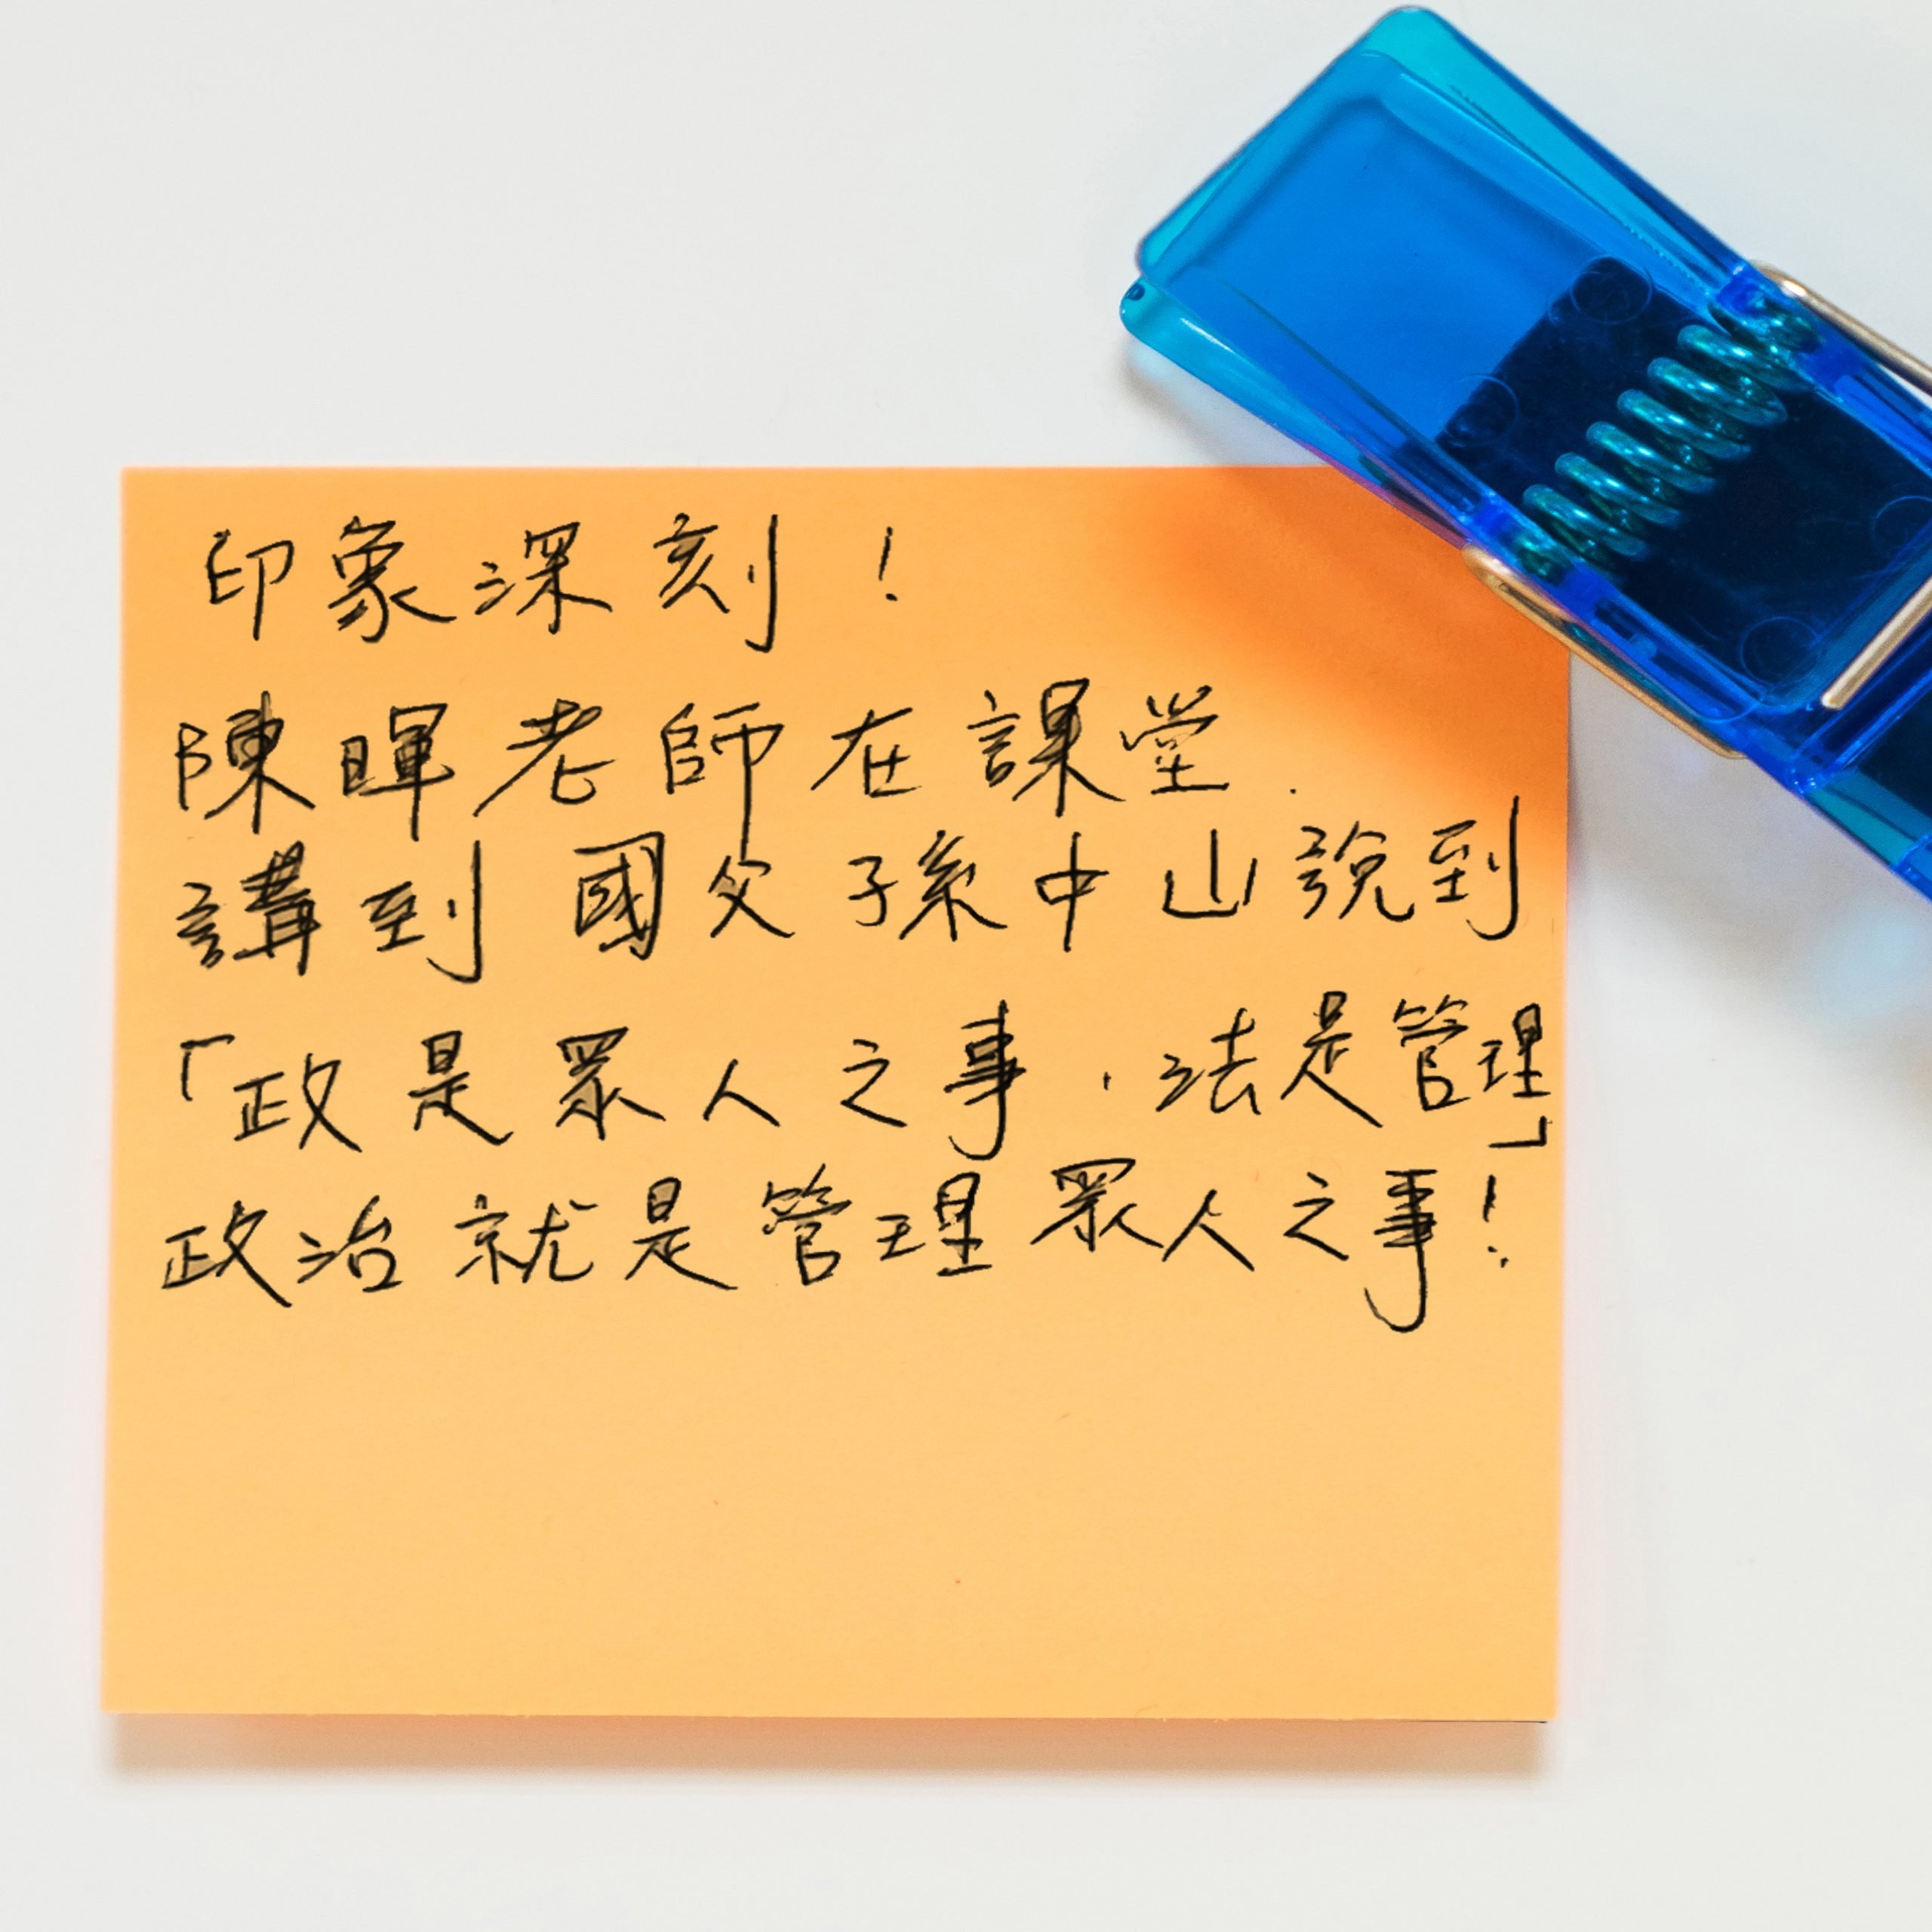 印象深刻！
陳暉老師在課堂.
講到國父孫中山說到
「政是眾人之事，法是管理」
政治就是管理眾人之事！